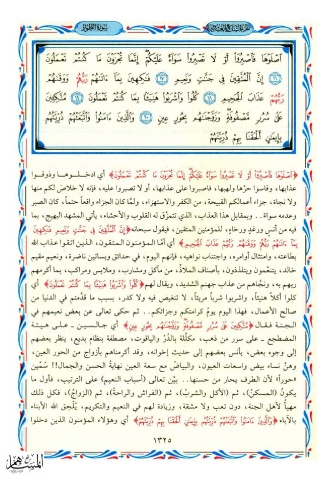 سورة الطور
اصلوها فاصبروا أو لا تصبروا سواء عليكم إنما تجزون ما كنتم تعملون
إن المتقين في جنات ونعيم فاكهين بما آتاهم ربهم ووقاهم
ربهم عذاب الجحيم كلوا واشربوا هنيئا بما كنتم تعملون متكئين
على سرر مصفوفة وزوجناهم بحور عين والذين آمنوا واتبعتهم ذريتهم
بإيمان ألحقنا بهم ذريتهم
﴿اصلوها فاصبروا أو لا تصبروا سواء عليكم إنما تجزون ما كنتم تعملون﴾ أي ادخلوها وذوقوا
عذابها، وقاسوا حرها ولهيبها، فاصبروا على عذابها، أو لا تصبروا عليه، فإنه لا خلاص لكم منها
ولا نجاة، جزاء أعمالكم القبيحة، من الكفر والاستهزاء، ولما كان الجزاء واقعاً حتماً، كان الصبر
وعدمه سواء.. وبمقابل هذا العذاب، الذي تتمزق له القلوب والأحشاء، يأتي المشهد البهيج، بما
فيه من أنس ورغدٍ ورخاءٍ، للمؤمنين المتقين، فيقول سبحانه ﴿إن المتقين في جنات ونعيم فاكهين
بما آتاهم ربهم ووقاهم ربهم عذاب الجحيم﴾ أي أمّا المؤمنون المتقون، الذين اتقوا عذاب الله
بطاعته، وامتثال أوامره، واجتناب نواهيه، فإنهم اليوم، في حدائق وبساتين ناضرة، ونعيم مقيم
خالد، يتنعمون ويتلذذون، بأصناف الملاذّ، من مآكل ومشارب، وملابس ومراكب، بما أكرمهم
ربهم به، ونجاهم من عذاب جهنم الشديد، ويقال لهم ﴿كلوا واشربوا هنيئا بما كنتم تعملون﴾ أي
كلوا أكلاً هنيئاً، واشربوا شرباً مريئاً، لا تنغيص فيه ولا كدر، بسبب ما قدمتم في الدنيا من
صالح الأعمال، فهذا اليوم يوم كرامتكم وجزائكم.. ثم حكى تعالى عن بعض نعيمهم في
الجنة فقال ﴿متكئين على سرر مصفوفة وزوجناهم بحور عين﴾ أي جالسين على هيئة
المضطجع، على سرر من ذهب، مكللة بالدر والياقوت، مصطفة بنظام بديع، ينظر بعضهم
إلى وجوه بعض، يأنس بعضهم إلى حديث إخوانه، وقد أكرمناهم بأزواج من الحور العين،
وهنّ نساء بيض واسعات العيون، والبياض مع سعة العين نهاية الحسن والجمال!! سُمّين
«حوراً» لأن الطرف يحار من حسنها.. بيّن تعالى (أسباب النعيم) على الترتيب، فأول ما
يكون (المسكن)، ثم (الأكل والشرب)، ثم (الفراش والراحة)، ثم (الزواج)، فكل ذلك
مهيأ لأهل الجنة، دون تعب ولا مشقة، وزيادة لهم في النعيم والتكريم، يُلحق الله الأبناء
بالآباء ﴿والذين آمنوا واتبعتهم ذريتهم بإيمان ألحقنا بهم ذريتهم﴾ أي وهؤلاء المؤمنون الذين دخلوا
١٣٢٥